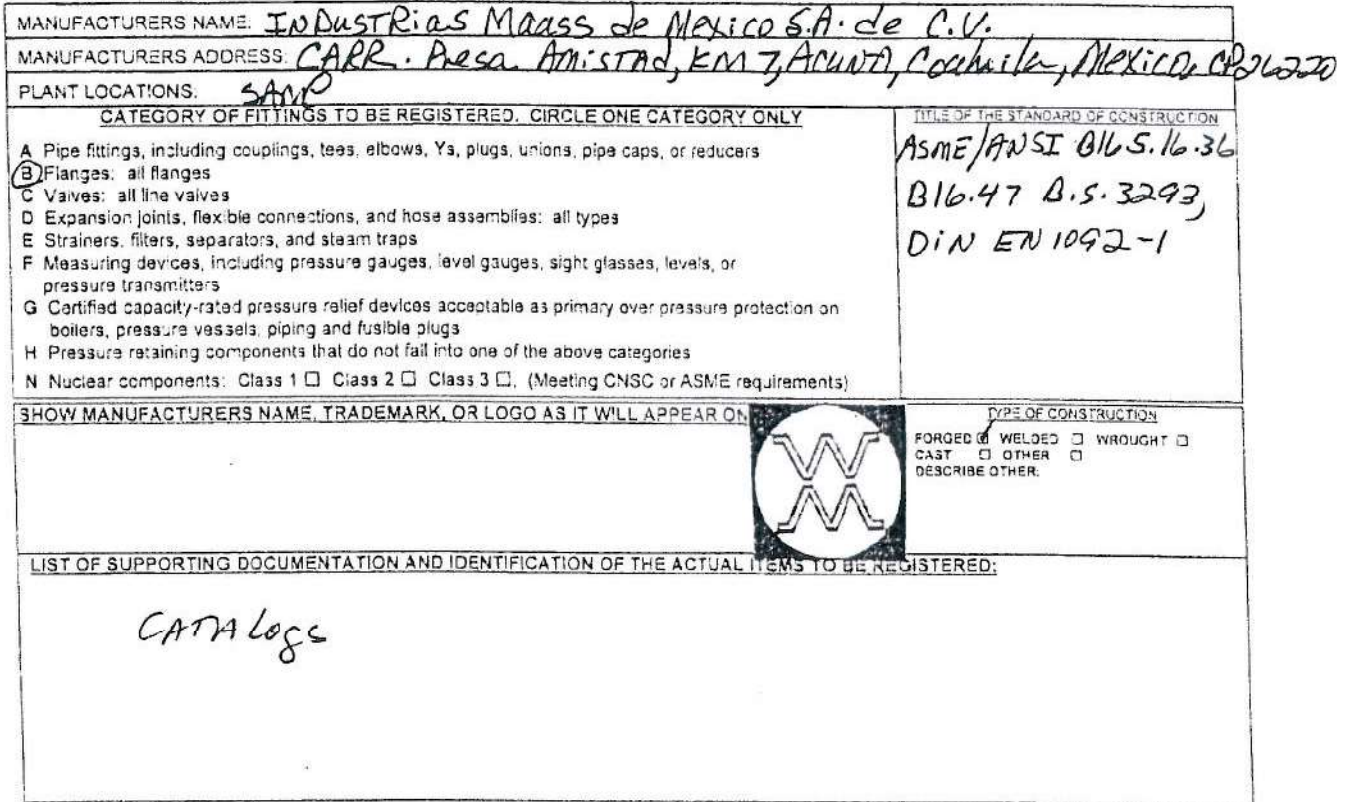 MANUFACTURERS NAME: INDUSTRIAS MAASS de MEXICO S.A. de C.V.
MANUFACTURERS ADDRESS: CARR. Presa Amistad, KM 7, ACUNA, Coahuila, MEXICO, CP26220
PLANT LOCATIONS: SAME
CATEGORY OF FITTINGS TO BE REGISTERED. CIRCLE ONE CATEGORY ONLY
A Pipe fittings, including couplings, tees, elbows, Ys, plugs, unions, pipe caps, or reducers
B Flanges: all flanges
C Valves: all line valves
D Expansion joints, flexible connections, and hose assemblies: all types
E Strainers, filters, separators, and steam traps
F Measuring devices, including pressure gauges, level gauges, sight glasses, levels, or
pressure transmitters
G Certified capacity-rated pressure relief devices acceptable as primary over pressure protection on
boilers, pressure vessels, piping and fusible plugs
H Pressure retaining components that do not fall into one of the above categories
N Nuclear components: Class 1 ☐ Class 2 ☐ Class 3 ☐, (Meeting CNSC or ASME requirements)
TITLE OF THE STANDARD OF CONSTRUCTION
ASME/ANSI B16 5.16.36
B16.47 B.S. 3293,
DiN EN 1092-1
SHOW MANUFACTURERS NAME, TRADEMARK, OR LOGO AS IT WILL APPEAR ON
TYPE OF CONSTRUCTION
FORGED ☑ WELDED ☐ WROUGHT ☐
CAST ☐ OTHER ☐
DESCRIBE OTHER:
LIST OF SUPPORTING DOCUMENTATION AND IDENTIFICATION OF THE ACTUAL ITEMS TO BE REGISTERED:
CATALogs